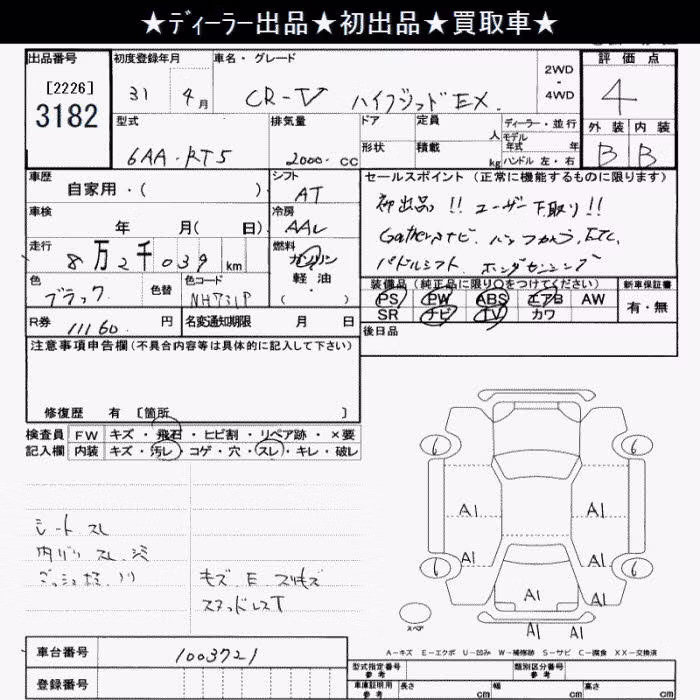 ★ディーラー出品★初出品★買取車★
出品番号
[2226]
3182
初度登録年月
31 4月
車名・グレード
CR-V ハイブリッド EX.
2WD
4WD
評価点
4
外装 内装
B B
型式
6AA-RT5
排気量
2000 CC
ドア
形状
定員 人
積載 kg
ディーラー・並行
モデル年式 年
ハンドル 左・右
車歴
自家用・( )
シフト
AT
セールスポイント (正常に機能するものに限ります)
初出品!! ユーザー下取り!!
Gathersナビ、バックカメラ、ETC、
パドルシフト ホンダセンシング
車検
年 月( 日)
冷房
AAC
走行
8万2千039 km
燃料
ガソリン
軽油
( ・ )
色
ブラック
色替
色コード
NH731P
装備品 (純正品に限り○をつけてください)
PS PW ABS エアB AW
SR ナビ TV カワ
新車保証書
有・無
R券
11160 円
名変通知期限 月 日
後日品
注意事項申告欄 (不具合内容等は具体的に記入して下さい)
修復歴 有 [箇所 ]
検査員 FW キズ・飛石・ヒビ割・リペア跡・×要
記入欄 内装 キズ・汚レ・コゲ・穴・スレ・キレ・破レ
シート スレ
内バリ スレ.汚
キズ E スリキズ
スタッドレスT
6 6
A1 A1
A1 A1
6 6
A1 A1
A1 A1
スペア
A−キズ E−エクボ U−凹み W−補修跡 S−サビ C−腐食 XX−交換済
車台番号
1003721
登録番号
型式指定番号
参考
類別区分番号
参考
車庫証明用
参考
長さ cm 幅 cm 高さ cm